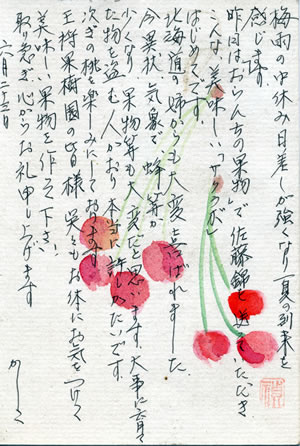 梅雨の中休み日差しが強くなり夏の到来を
感じます
昨日はおらんちの果物で佐藤錦を送っていただき
こんな美味しい「さくらんぼ」
はじめてです。
北海道の姉からも大変喜ばれました。
今異状気象で蜂等が
少くなり果物等も大変だと思います。大事に育て
た物を盗む人がおり本当に許しがたいです。
次ぎの桃を楽しみにしております
王将果樹園の皆様 呉々もお体にお気をつけて
美味しい果物を作って下さい
取り急ぎ心からお礼申し上げます
かしこ
六月二十三日